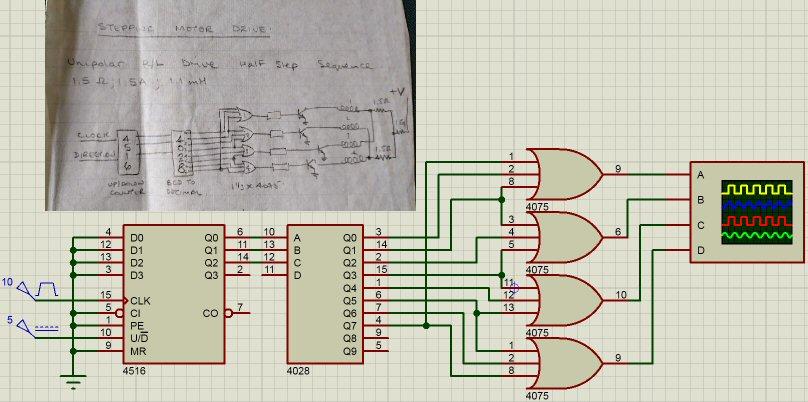 STEPPING MOTOR DRIVE.
Unipolar R/L Drive Half Step Sequence
1.5 Ω; 1.5A; 1.1 mH
+V
1.5Ω
CLOCK
DIRECTION
4
5
1
6
1.5Ω
UP/DOWN
COUNTER
BCD TO
DECIMAL
4075
10
5
4 D0 Q0 6
12 D1 Q1 11
13 D2 Q2 14
3 D3 Q3 2
15 CLK
5 CI CO 7
1 PE
10 U/D
9 MR
4516
10 A Q0 3
13 B Q1 14
12 C Q2 2
11 D Q3 15
Q4 1
Q5 6
Q6 7
Q7 4
Q8 9
Q9 5
4028
1
2 9
8
4075
3
4 6
5
4075
11
12 10
13
4075
1
2 9
8
4075
A
B
C
D